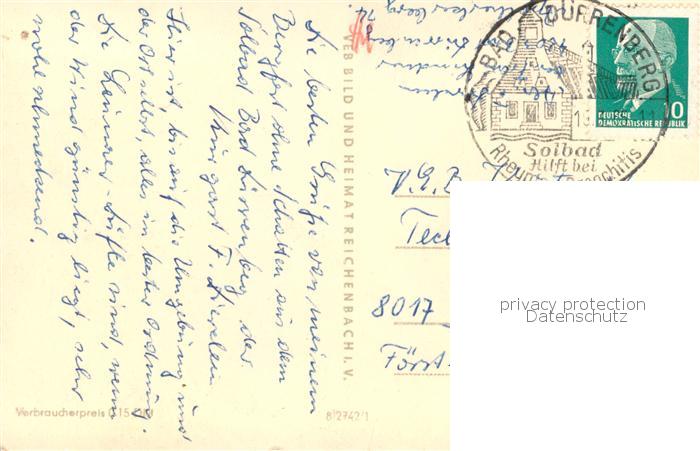 Die besten Grüße von meinem
Burgfest ohne Schatten aus dem
Solbad Bad Dürrenberg der
Kurgast F.
Hier ist bis auf die Umgebung und
der Ort selbst, alles in bester Ordnung.
Die Leunaer-Lüfte sind, wenn
der Wind günstig liegt, sehr
wohlschmeckend.
VEB BILD UND HEIMAT REICHENBACH I. V.
Verbraucherpreis 0,15 DM
8/2742/1
BAD DÜRRENBERG
19.
11
Solbad
Hilft bei
Rheuma Bronchitis
10
DEUTSCHE
DEMOKRATISCHE REPUBLIK
V.E.B.
Tech
8017
Först
privacy protection
Datenschutz